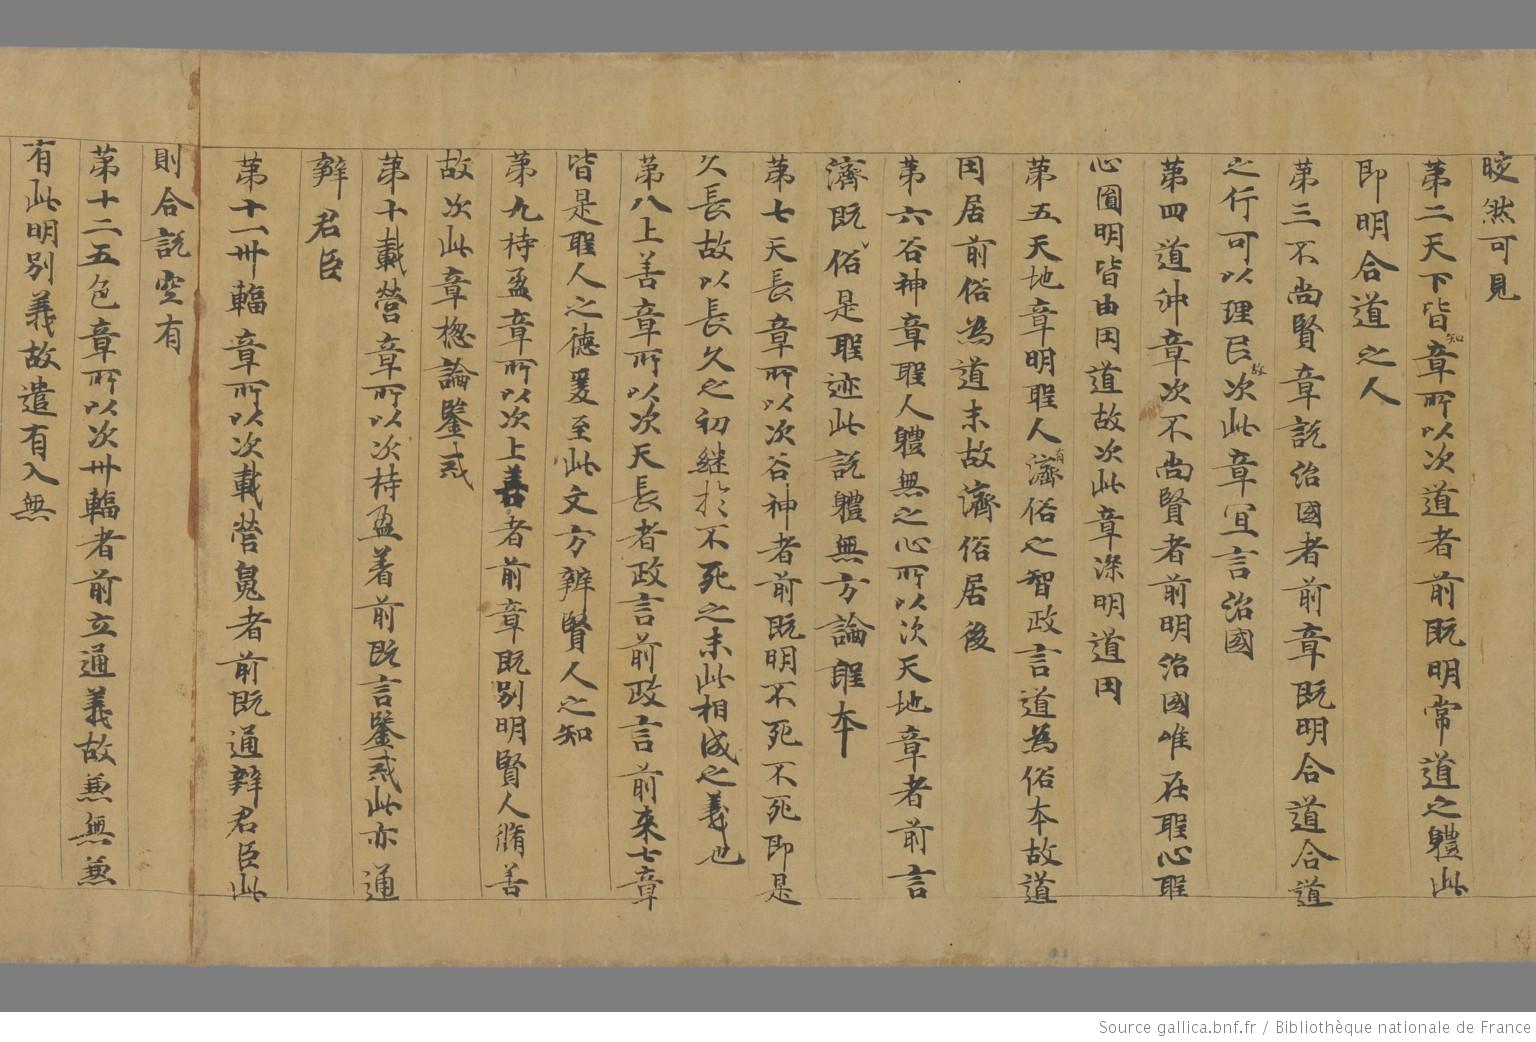 晈然可見
第二天下皆知章所以次道者前既明常道之體此
即明合道之人
第三不尚賢章説治國者前章既明合道合道
之行可以理民故次此章冝言治國
第四道沖章次不尚賢者前明治國唯在聖心聖
心圓明皆由因道故次此章深明道因
第五天地章明聖人有濟俗之智政言道為俗本故道
因居前俗為道末故濟俗居後
第六谷神章聖人體無之心所以次天地章者前言
濟既俗是聖迹此説體無方論聖本
第七天長章所以次谷神者前既明不死不死即是
久長故以長久之初継於不死之末此相成之義也
第八上善章所以次天長者政言前政言前来七章
皆是聖人之德爰至此文方辨賢人之知
第九持盈章所以次上善者前章既別明賢人脩善
故次此章揔論鑒戒
第十載營章所以次持盈着前既言鑒戒此亦通
辯君臣
第十一卅輻章所以次載營䰟者前既通辯君臣此
則合説空有
第十二五色章所以次卅輻者前立通義故兼無兼
有此明別義故遣有入無
Source gallica.bnf.fr / Bibliothèque nationale de France